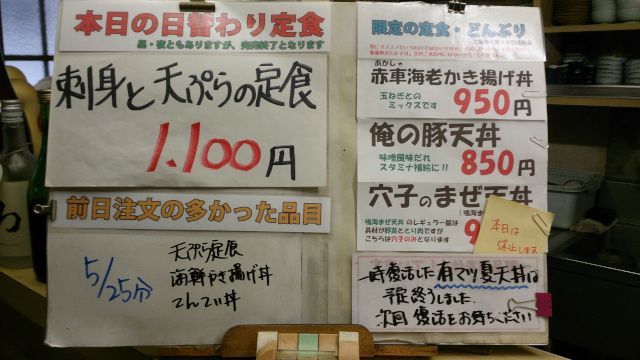 本日の日替わり定食
昼・夜ともありますが、完売終了となります
刺身と天ぷらの定食
1.100円
前日注文の多かった品目
5/25分
天ぷら定食
海鮮かき揚げ丼
てんてい丼
限定の定食・どんぶり
あかしゃ
赤車海老かき揚げ丼
玉ねぎとの
ミックスです
950円
俺の豚天丼
味噌風味だれ
スタミナ補給に!!
850円
穴子のまぜ天丼
鳴海まぜ天丼のレギュラー版は
具材が野菜ととり肉ですが
こちらは穴子のみとなります
本日は
休止します
一時復活した有マツ夏天丼は
予定終了しました
次回復活をお待ちください